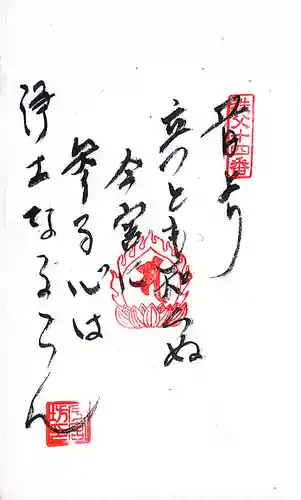 秩父十四番
昔より
立つとも知らぬ
今宮に
参る心は
浄土なるらん